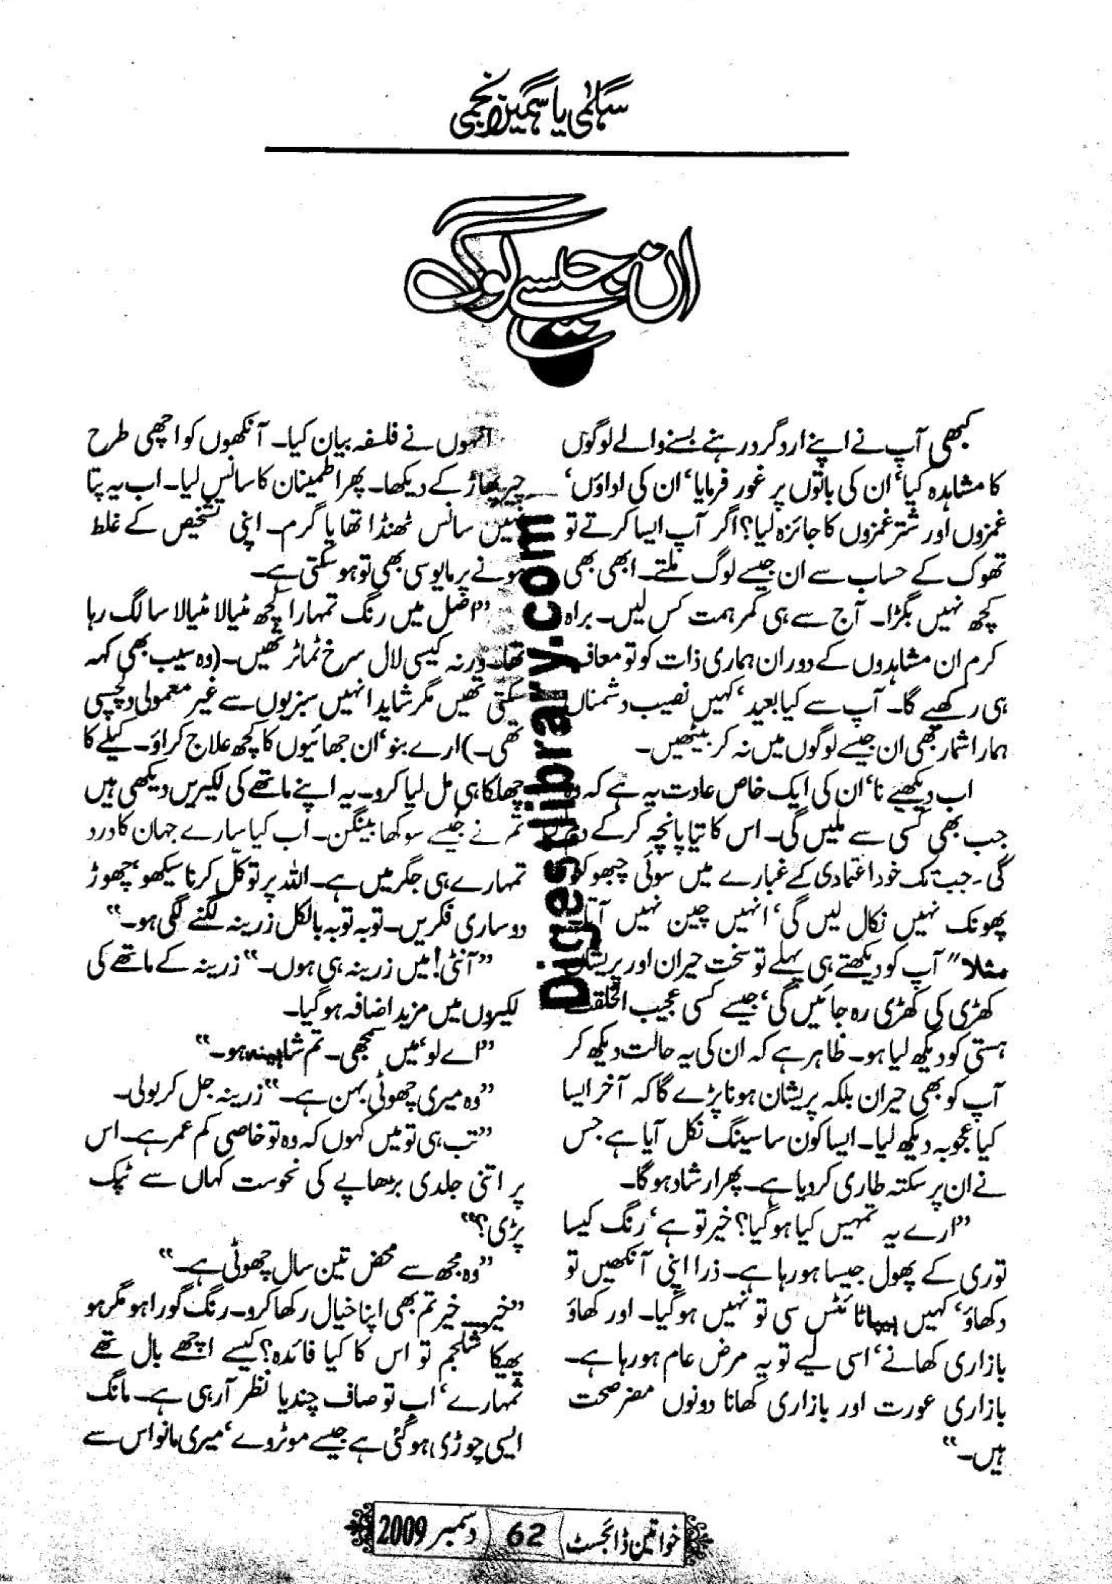 سلمیٰ یاسمین نجمی
ان جیسے لوگ
کبھی آپ نے اپنے ارد گرد رہنے بسنے والے لوگوں
کا مشاہدہ کیا‘ ان کی باتوں پر غور فرمایا‘ ان کی اداؤں‘
غمزوں اور شتر غمزوں کا جائزہ لیا؟ اگر آپ ایسا کرتے تو
تھوک کے حساب سے ان جیسے لوگ ملتے۔ ابھی بھی
کچھ نہیں بگڑا۔ آج سے ہی کمر ہمت کس لیں۔ براہ
کرم ان مشاہدوں کے دوران ہماری ذات کو تو معاف
ہی رکھیے گا۔ آپ سے کیا بعید‘ کہیں نصیب دشمناں
ہمارا شمار بھی ان جیسے لوگوں میں نہ کر بیٹھیں۔
اب دیکھیے نا‘ ان کی ایک خاص عادت یہ ہے کہ وہ
جب بھی کسی سے ملیں گی۔ اس کا تیا پانچہ کر کے دم لیں
گی۔ جب تک خود اعتمادی کے غبارے میں سوئی چبھو کر
پھونک نہیں نکال لیں گی‘ انہیں چین نہیں آتا۔
مثلا" آپ کو دیکھتے ہی پہلے تو سخت حیران اور پریشان
کھڑی کی کھڑی رہ جائیں گی‘ جیسے کسی عجیب الخلقت
ہستی کو دیکھ لیا ہو۔ ظاہر ہے کہ ان کی یہ حالت دیکھ کر
آپ کو بھی حیران بلکہ پریشان ہونا پڑے گا کہ آخر ایسا
کیا عجوبہ دیکھ لیا۔ ایسا کون سا سینگ نکل آیا ہے جس
نے ان پر سکتہ طاری کر دیا ہے۔ پھر ارشاد ہو گا۔
”ارے یہ تمہیں کیا ہو گیا؟ خیر تو ہے‘ رنگ کیسا
توری کے پھول جیسا ہو رہا ہے۔ ذرا اپنی آنکھیں تو
دکھاؤ‘ کہیں ہیپاٹائٹس سی تو نہیں ہو گیا۔ اور کھاؤ
بازاری کھانے‘ اسی لیے تو یہ مرض عام ہو رہا ہے۔
بازاری عورت اور بازاری کھانا دونوں مضر صحت
ہیں۔“
انہوں نے فلسفہ بیان کیا۔ آنکھوں کو اچھی طرح
چیر پھاڑ کے دیکھا۔ پھر اطمینان کا سانس لیا۔ اب یہ پتا
نہیں سانس ٹھنڈا تھا یا گرم۔ اپنی تشخیص کے غلط
ہونے پر مایوسی بھی تو ہو سکتی ہے۔
”اصل میں رنگ تمہارا کچھ مٹیالا مٹیالا سا لگ رہا
تھا۔ ورنہ کیسی لال سرخ ٹماٹر تھیں۔ (وہ سیب بھی کہہ
سکتی تھیں مگر شاید انہیں سبزیوں سے غیر معمولی دلچسپی
تھی۔) ارے بنو‘ ان جھائیوں کا کچھ علاج کراؤ۔ کیلے کا
چھلکا ہی مل لیا کرو۔ یہ اپنے ماتھے کی لکیریں دیکھی ہیں
تم نے جیسے سوکھا بینگن۔ اب کیا سارے جہان کا درد
تمہارے ہی جگر میں ہے۔ اللہ پر توکل کرنا سیکھو‘ چھوڑ
دو ساری فکریں۔ توبہ توبہ بالکل زرینہ لگنے لگی ہو۔“
”آنٹی! میں زرینہ ہی ہوں۔“ زرینہ کے ماتھے کی
لکیروں میں مزید اضافہ ہو گیا۔
”اے لو‘ میں سمجھی۔ تم شاہینہ ہو۔“
”وہ میری چھوٹی بہن ہے۔“ زرینہ جل کر بولی۔
”تب ہی تو میں کہوں کہ وہ تو خاصی کم عمر ہے۔ اس
پر اتنی جلدی بڑھاپے کی نحوست کہاں سے ٹپک
پڑی؟“
”وہ مجھ سے محض تین سال چھوٹی ہے۔“
”خیر۔۔۔ خیر تم بھی اپنا خیال رکھا کرو۔ رنگ گورا ہو مگر ہو
پھیکا شلجم تو اس کا کیا فائدہ؟ کیسے اچھے بال تھے
تمہارے‘ اب تو صاف چندیا نظر آرہی ہے۔ مانگ
ایسی چوڑی ہو گئی ہے جیسے موٹروے‘ میری مانو اس سے
Digestlibrary.com
خواتین ڈائجسٹ 62 دسمبر 2009